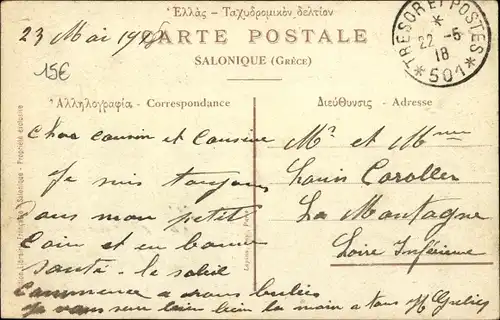 Ἑλλάς - Ταχυδρομικὸν δελτίον
23 Mai 1918
CARTE POSTALE
SALONIQUE (GRÈCE)
15€
TRESOR ET POSTES
*
22-5
18
* 501 *
Ἀλληλογραφία - Correspondance
Διεύθυνσις - Adresse
Cher cousin et Cousine
Je suis toujours
dans mon petit
Coin et en bonne
santé - le soleil
Commence a nous bruler
Je vous serre bien la main a tous
Mr et Mme
Louis Caroller
La Montagne
Loire Inférieure
Salonique - Propriété exclusive